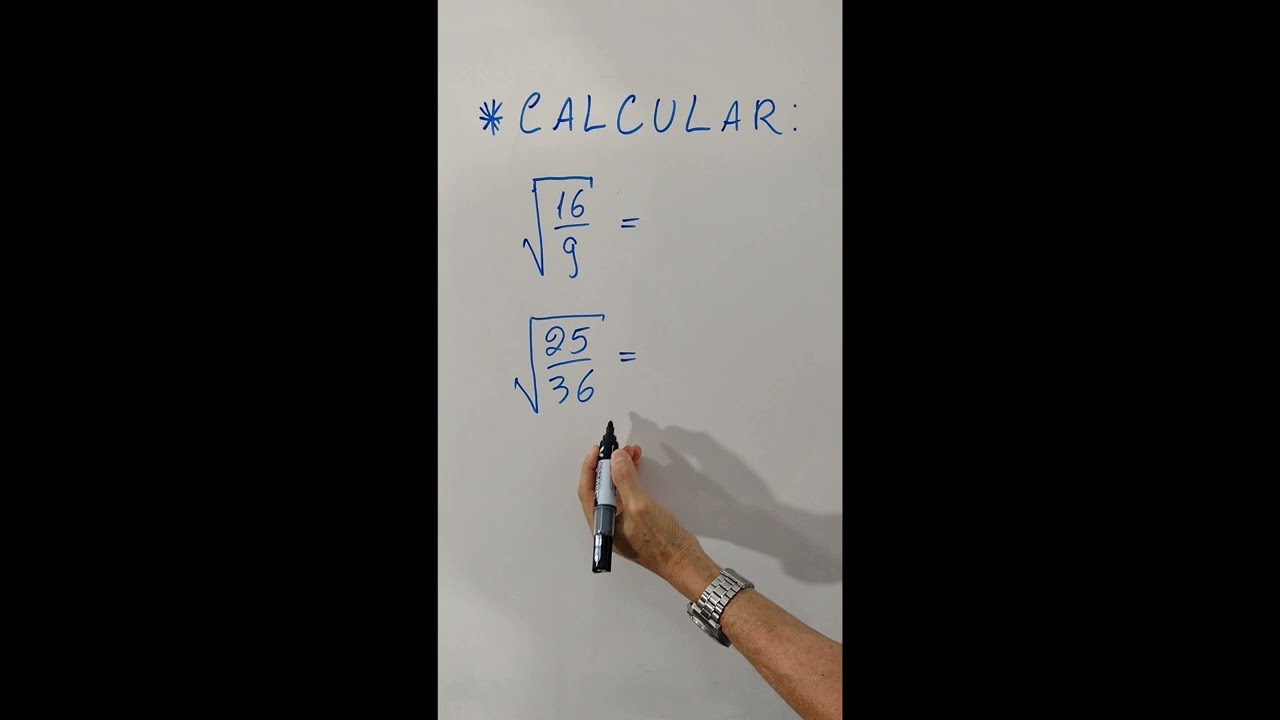 * CALCULAR:
√(16/9) =
√(25/36) =